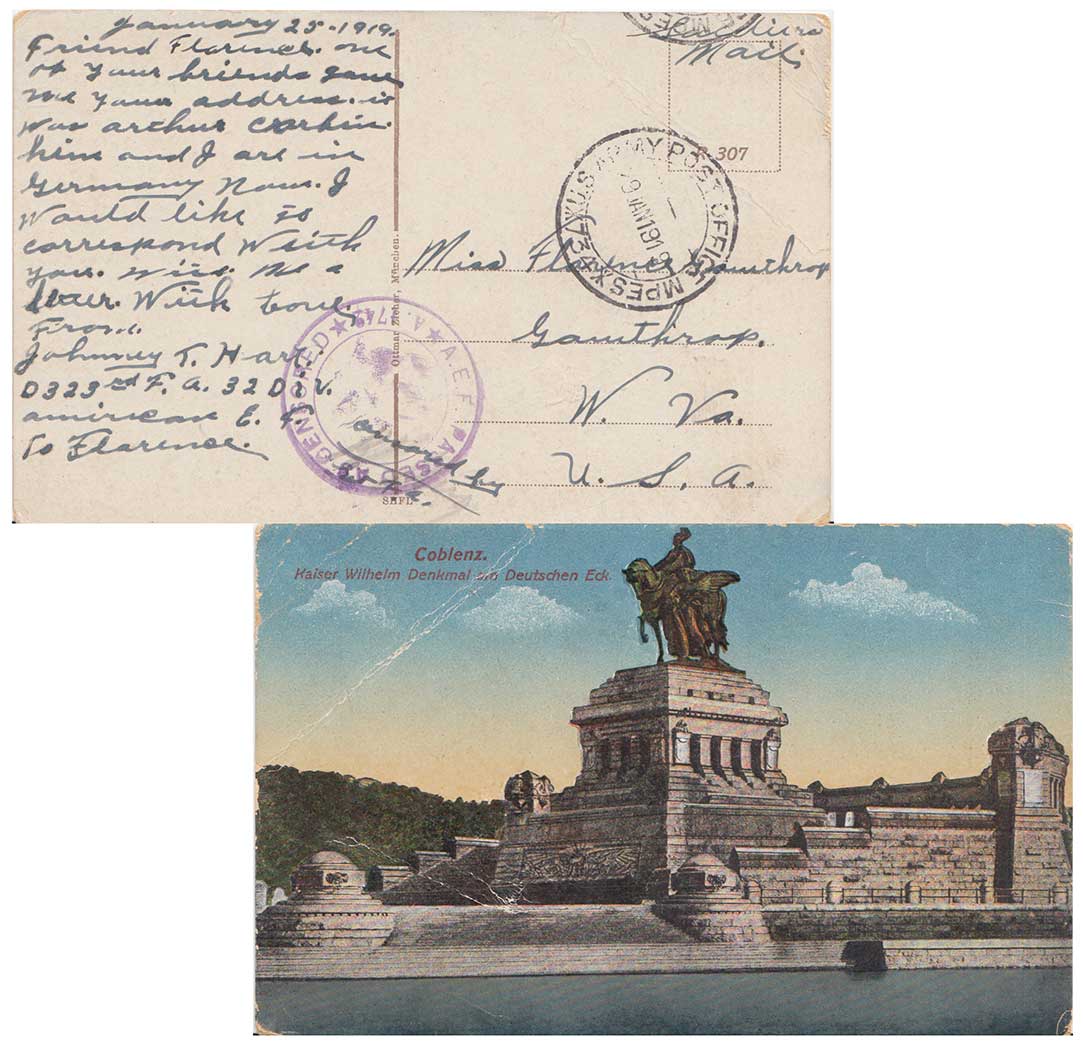 January 25-1919.
Friend Florence. one
of your friends gave
me your address. it
was arthur Corbin.
him and I are in
Germany Now. I
Would like to
correspond With
you. Write Me a
letter. With Love
From.
Johnney T. Hart.
D323rd F. A. 32 Div.
american E. F.
To Florence.
Soldiers
Mail
R 307
U.S. ARMY POST OFFICE MPES
29 JAN 1919
Miss Florence Gawthrop
Gawthrop.
W. Va.
U. S. A.
Ottmar Zieher, München.
A.E.F. PASSED AS CENSORED
A.1742
Censored by
SHFL
Coblenz.
Kaiser Wilhelm Denkmal am Deutschen Eck.